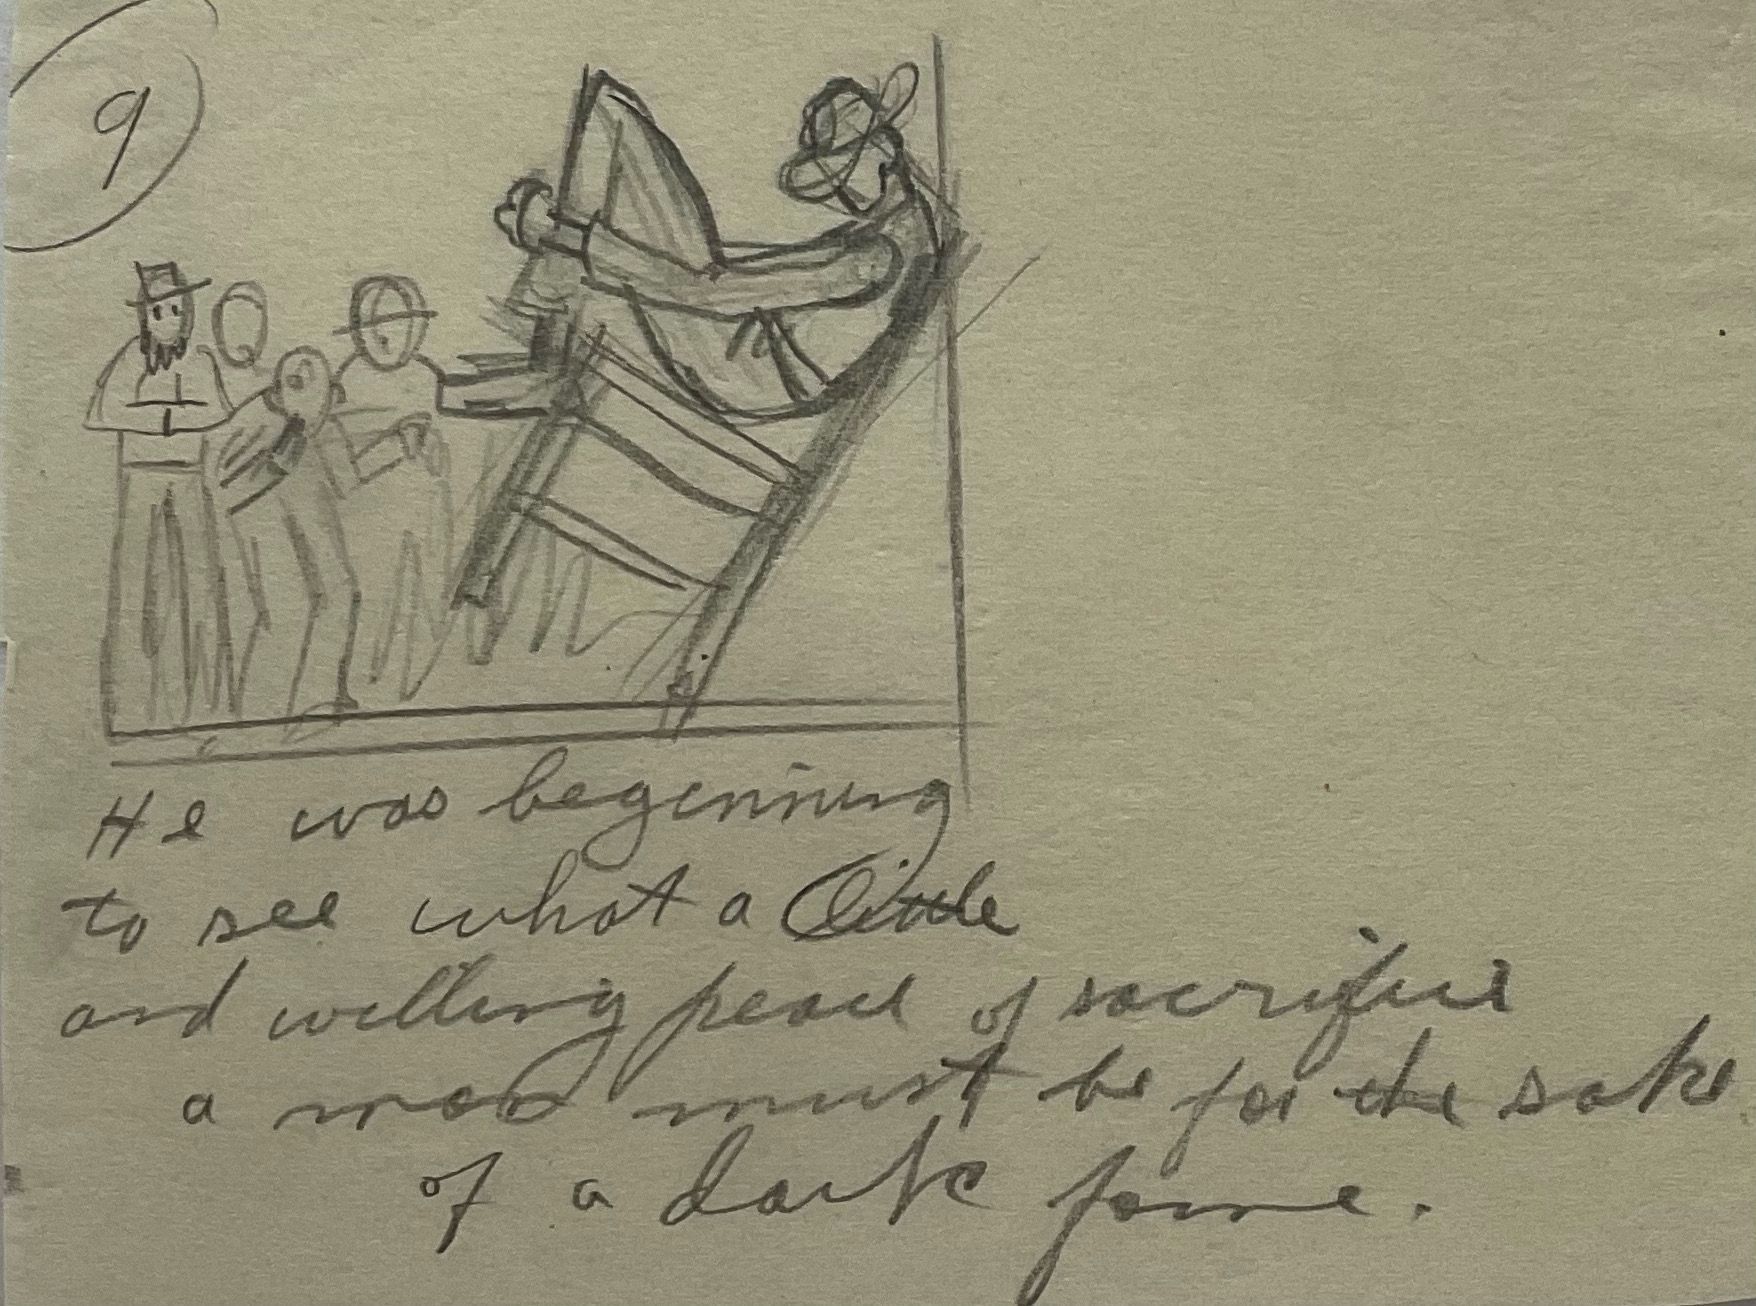 9
He was beginning
to see what a little
and willing peace of sacrifice
a man must be for the sake
of a dark fame.